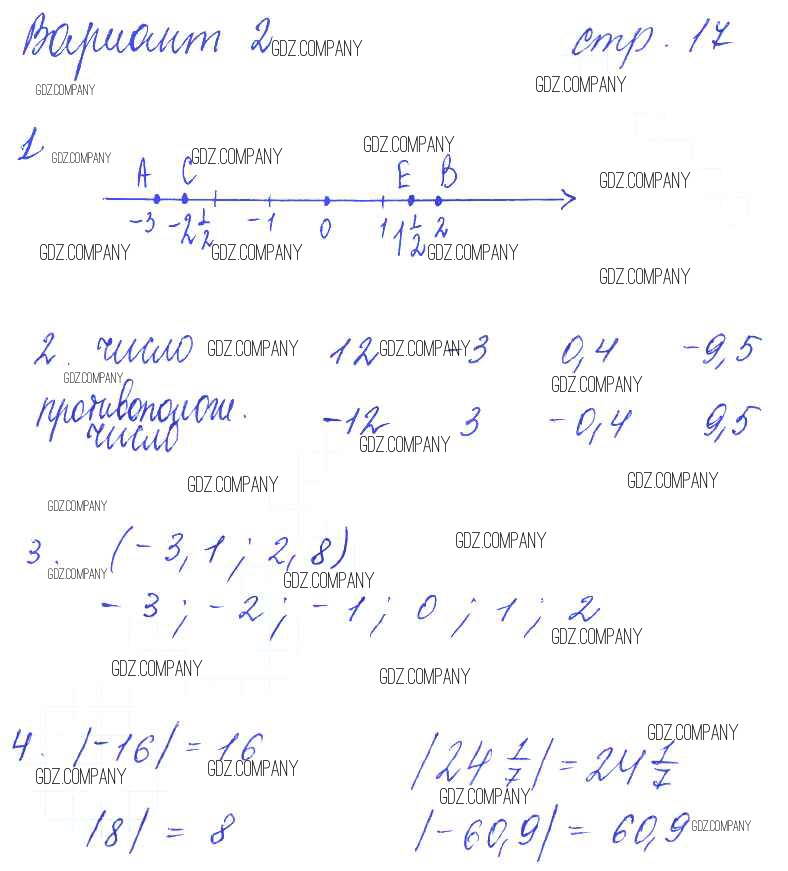 Вариант 2 GDZ.COMPANY стр. 17
GDZ.COMPANY GDZ.COMPANY
1 GDZ.COMPANY GDZ.COMPANY GDZ.COMPANY
A C E B GDZ.COMPANY
-3 -2 1/2 -1 0 1 1 1/2 2
GDZ.COMPANY GDZ.COMPANY GDZ.COMPANY
GDZ.COMPANY
2. число GDZ.COMPANY 12 GDZ.COMPANY -3 0,4 -9,5
GDZ.COMPANY GDZ.COMPANY
противополож. -12 3 -0,4 9,5
число GDZ.COMPANY
GDZ.COMPANY GDZ.COMPANY
GDZ.COMPANY
3. (-3,1; 2,8) GDZ.COMPANY
GDZ.COMPANY GDZ.COMPANY
-3; -2; -1; 0; 1; 2
GDZ.COMPANY
GDZ.COMPANY GDZ.COMPANY
4. |-16| = 16 |24 1/7| = 24 1/7 GDZ.COMPANY
GDZ.COMPANY GDZ.COMPANY GDZ.COMPANY
|8| = 8 |-60,9| = 60,9 GDZ.COMPANY